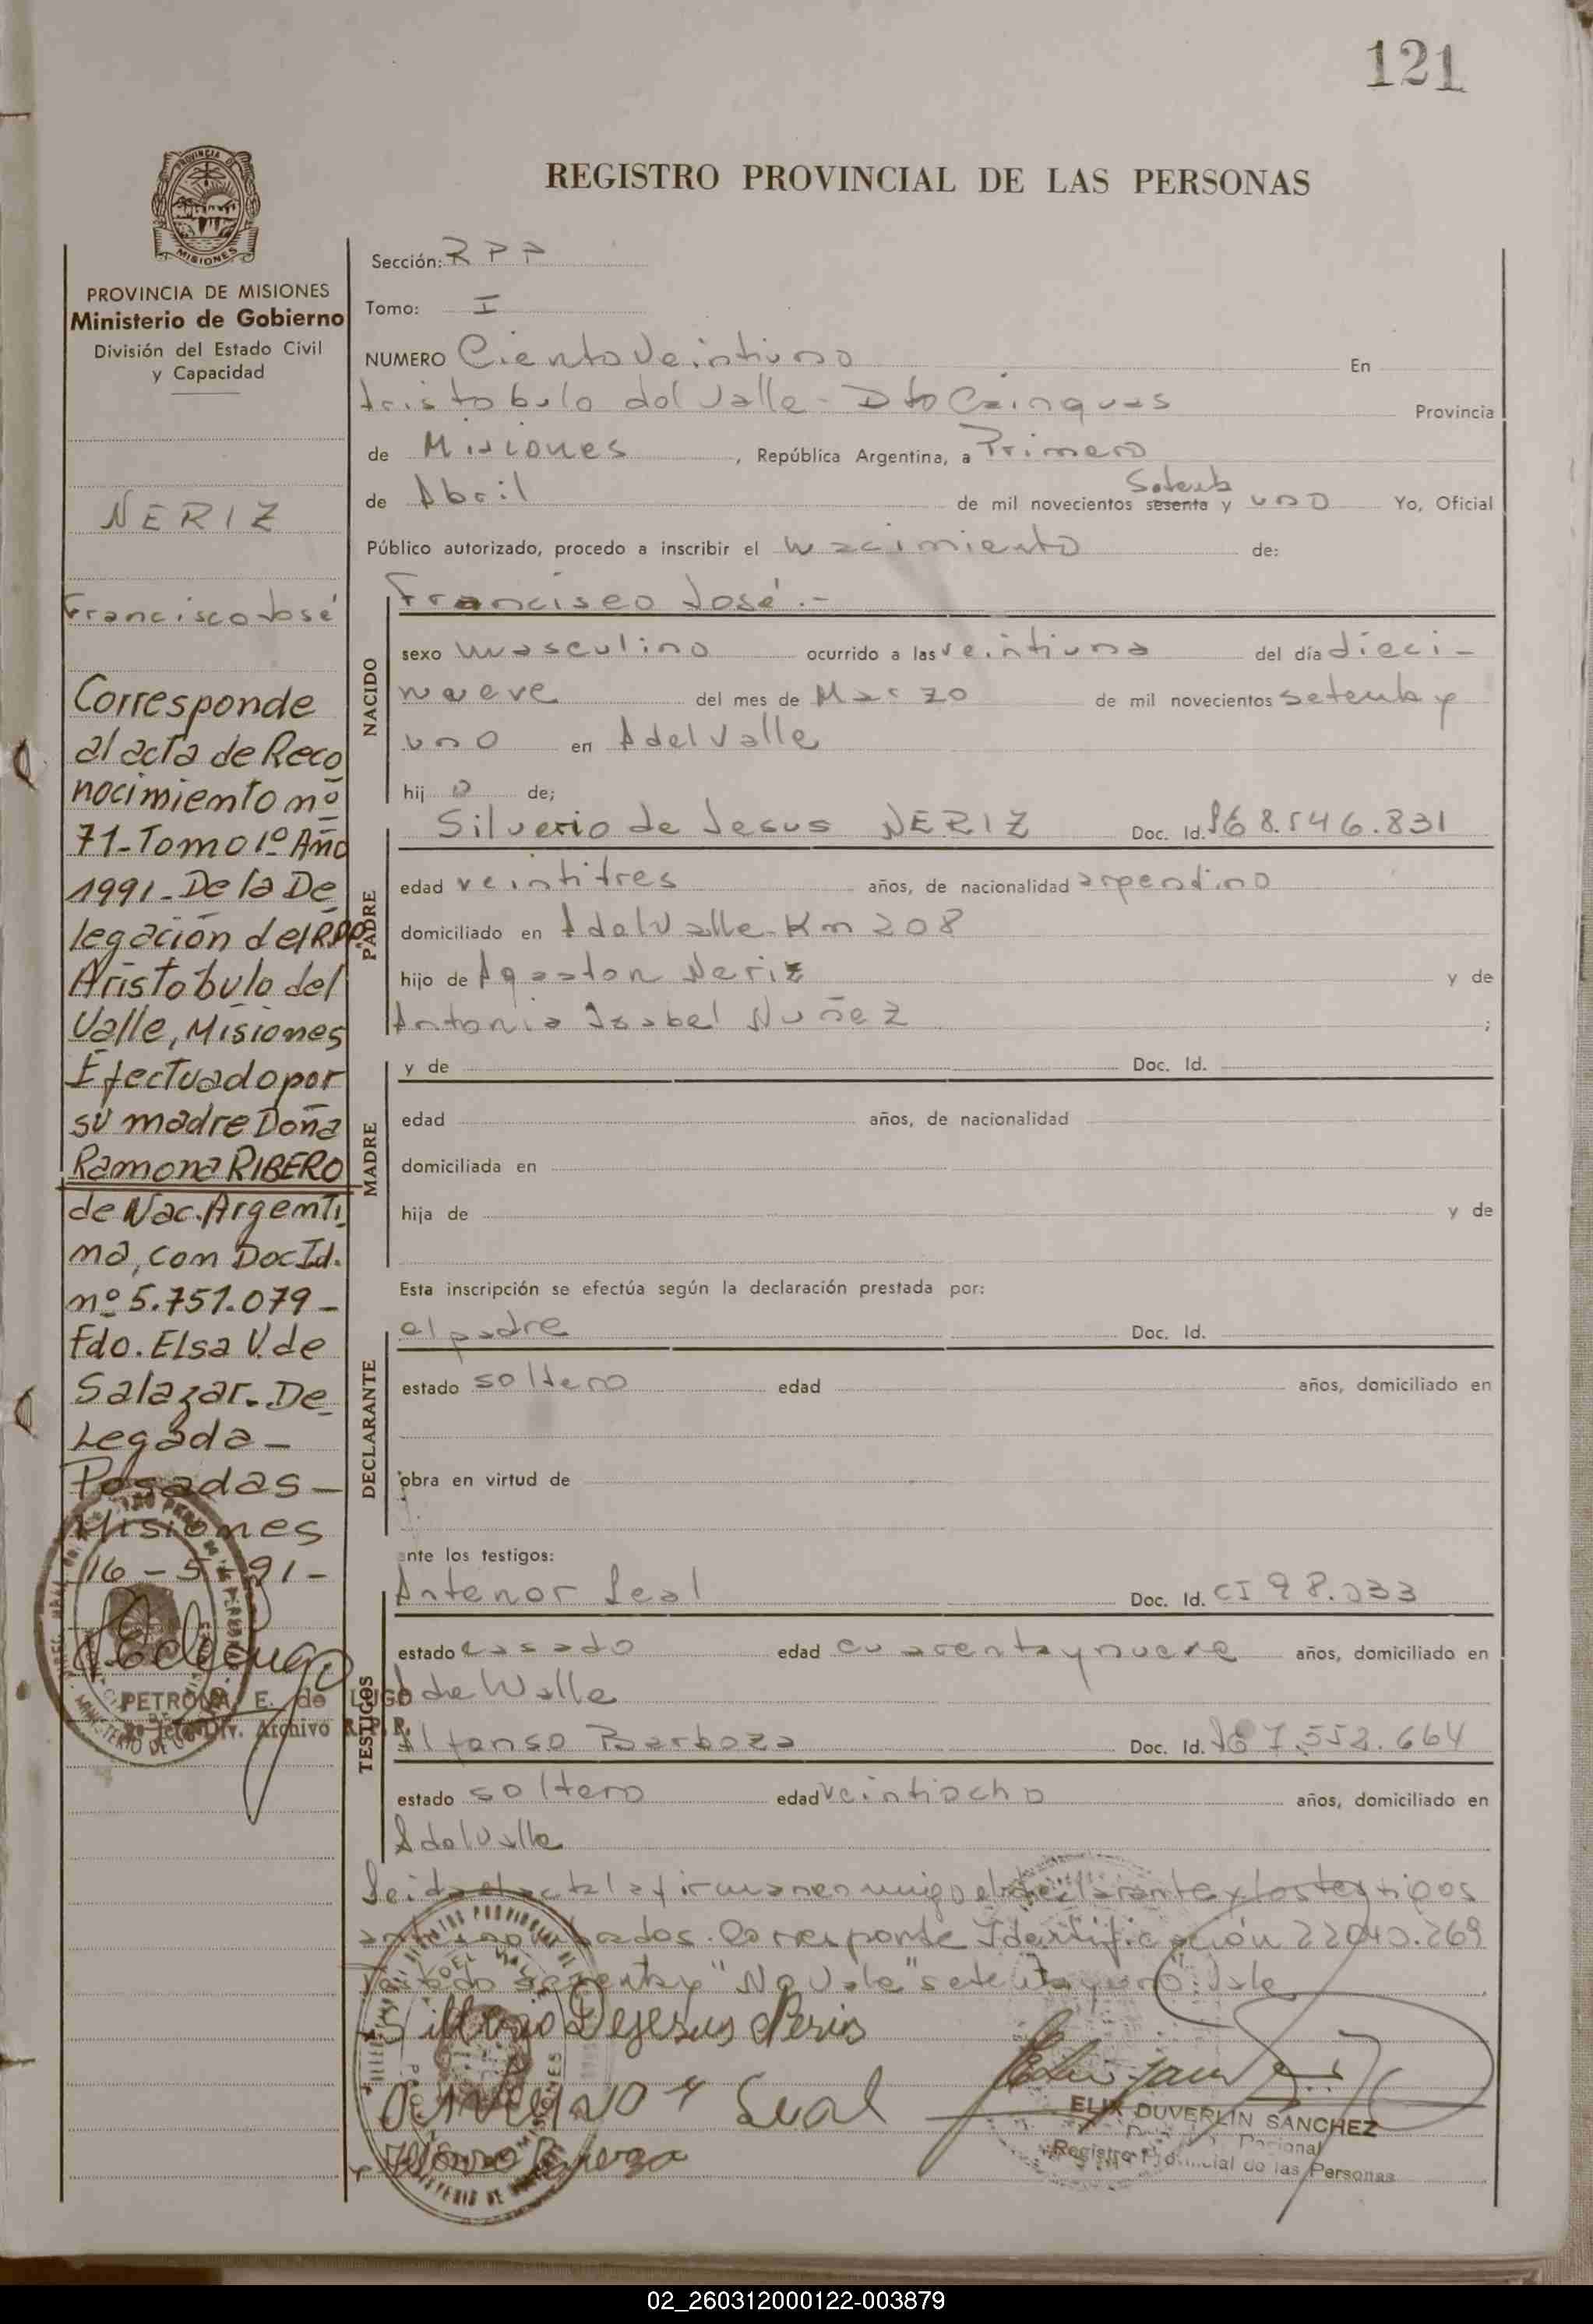 121
REGISTRO PROVINCIAL DE LAS PERSONAS
PROVINCIA DE MISIONES
Ministerio de Gobierno
División del Estado Civil
y Capacidad
NERIZ
Francisco José
Corresponde
al acta de Reco
nocimiento nº
71-Tomo 1º Año
1991-De la De
legación del R.P.P.
Aristóbulo del
Valle, Misiones
Efectuado por
su madre Doña
Ramona RIBERO
de Nac. Argenti
na, con Doc Id.
nº 5.751.079-
Fdo. Elsa V. de
Salazar. De
Legada-
Posadas-
Misiones
16-5-91-
PETRONA E. de LUGO
Jefe Div. Archivo R.P.P.
Sección: RPP
Tomo: I
NUMERO Ciento Veintiuno En
Aristobulo del Valle - Dto Cainguas Provincia
de Misiones, República Argentina, a Primero
de Abril de mil novecientos sesenta y uno Yo, Oficial
Setenta
Público autorizado, procedo a inscribir el nacimiento de:
NACIDO
Francisco José.-
sexo masculino ocurrido a las veintiuna del día dieci-
nueve del mes de Marzo de mil novecientos setenta y
uno en Adel Valle
hijo de;
PADRE
Silverio de Jesus NERIZ Doc. Id. 8.546.831
edad veintitres años, de nacionalidad argentino
domiciliado en Adel Valle-Km 208
hijo de Agaston Neriz y de
Antonia Isabel Nuñez ;
MADRE
y de Doc. Id.
edad años, de nacionalidad
domiciliada en
hija de y de
Esta inscripción se efectúa según la declaración prestada por:
DECLARANTE
el padre Doc. Id.
estado soltero edad años, domiciliado en
obra en virtud de
ante los testigos:
TESTIGOS
Antenor Leal Doc. Id. CI 98.033
estado casado edad cuarenta y nueve años, domiciliado en
Adel Valle
Alfonso Barboza Doc. Id. 7.552.664
estado soltero edad veintiocho años, domiciliado en
Adel Valle
Leida el acta la firman conmigo el declarante y los testigos
antes nombrados. Corresponde Identificación 22040.269
Testado sesenta y "No Vale" setenta y uno: Vale
Silverio Dejesus Neris
Antenor Leal
Alfonso Barboza
ELIX DUVERLIN SANCHEZ
Registro Provincial de las Personas
02_260312000122-003879